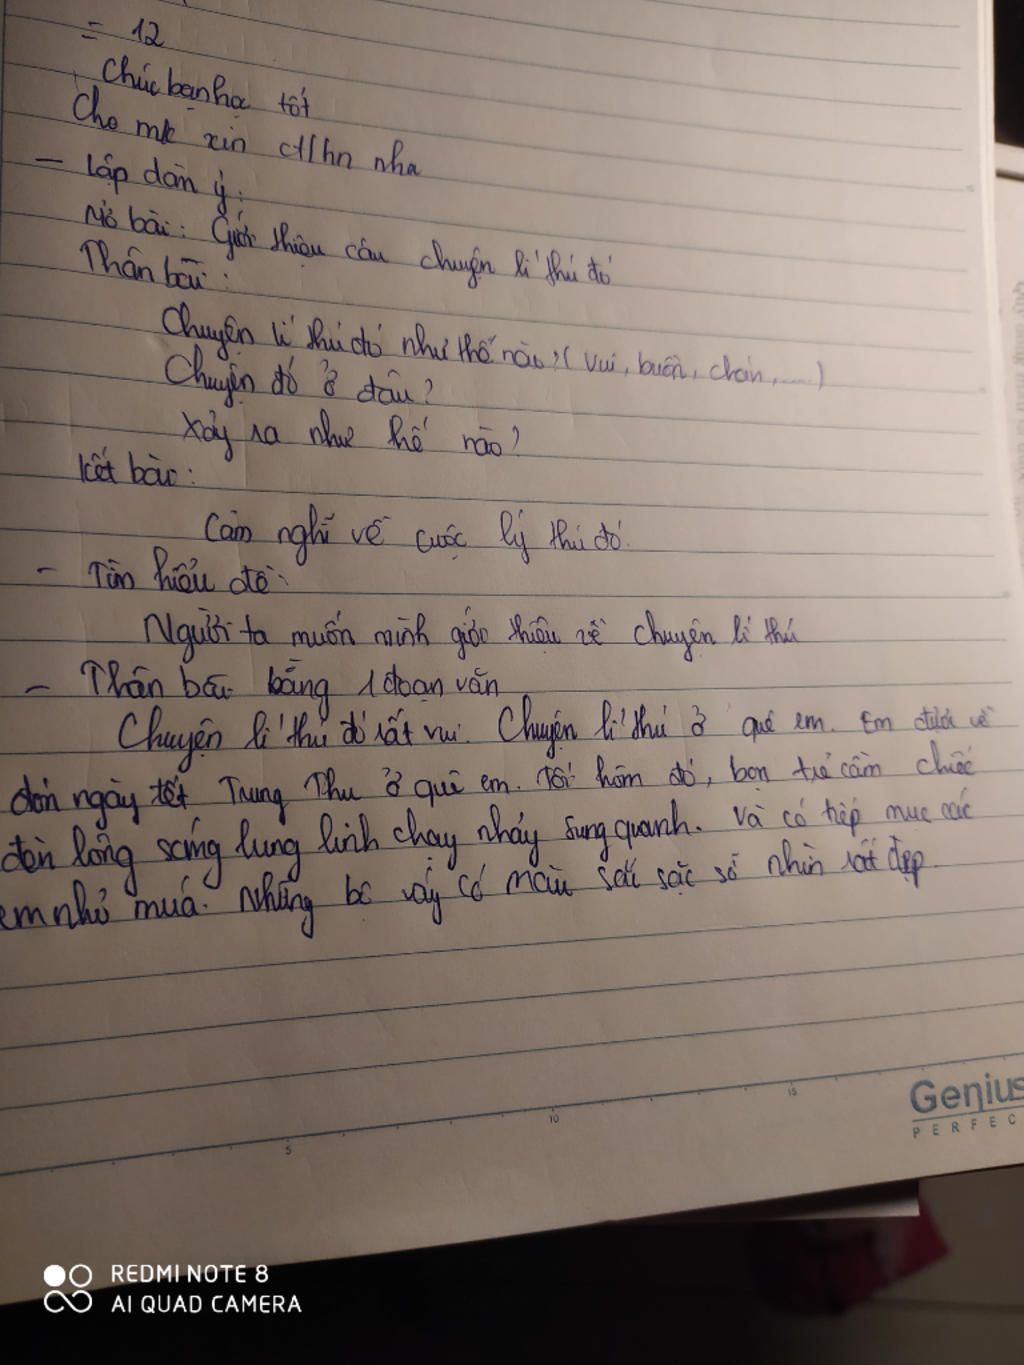 = 12
Chúc bạn học tốt
Cho mk xin ctlhn nha
- Lập dàn ý:
Mở bài: Giới thiệu câu chuyện lí thú đó
Thân bài:
Chuyện lí thú đó như thế nào? (vui, buồn, chán,.....)
Chuyện đó ở đâu?
Xảy ra như thế nào?
Kết bài:
Cảm nghĩ về cuộc lý thú đó.
- Tìm hiểu đề:
Người ta muốn mình giới thiệu về chuyện lí thú
- Thân bài bằng 1 đoạn văn
Chuyện lí thú đó rất vui. Chuyện lí thú ở quê em. Em được về
đón ngày tết Trung Thu ở quê em. Tối hôm đó, bọn trẻ cầm chiếc
đèn lồng sáng lung linh chạy nhảy sung quanh. Và có tiếp mục các
em nhỏ múa. Những bộ váy có màu sắc sặc sỡ nhìn rất đẹp.
5
10
15
Genius
PERFEC
REDMI NOTE 8
AI QUAD CAMERA